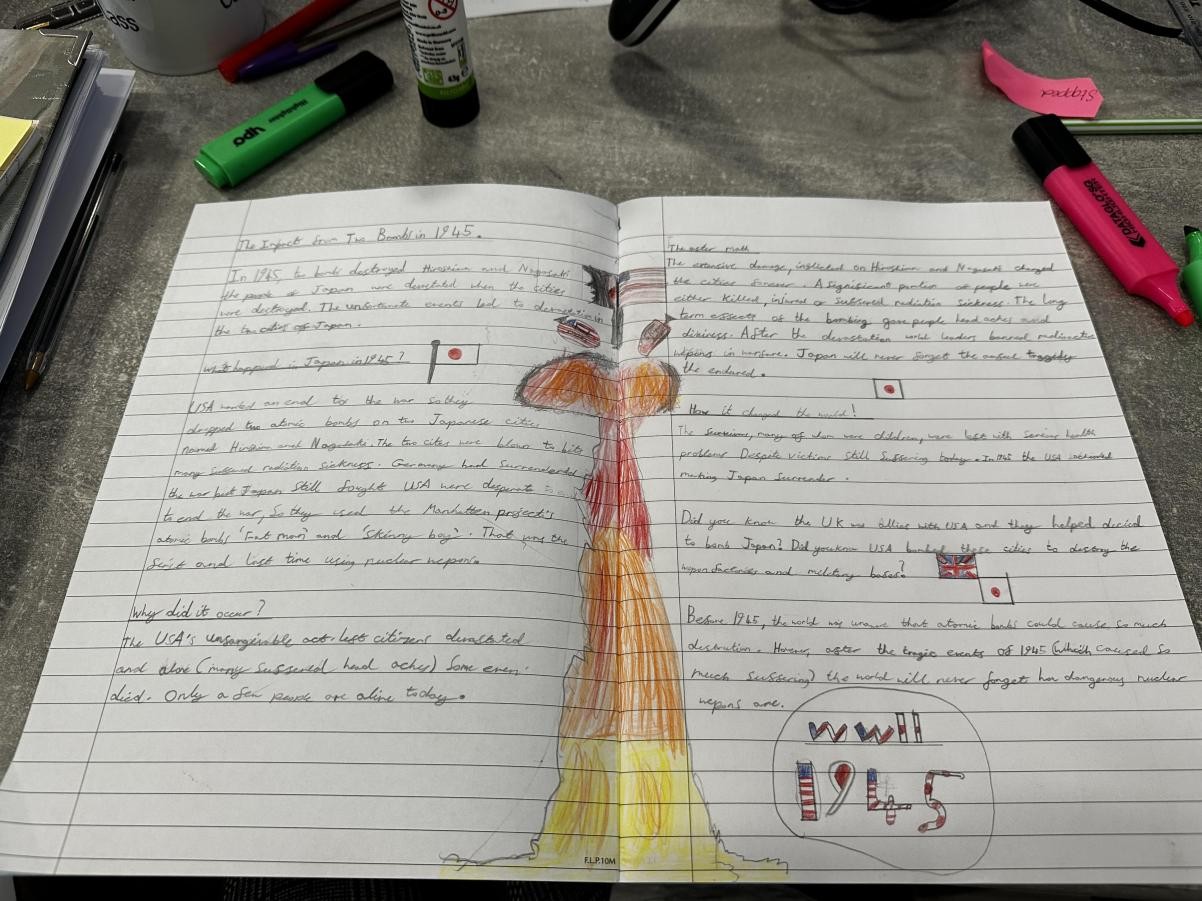 The Impact from Two Bombs in 1945.
In 1945, two bombs destroyed Hiroshima and Nagasaki
the people of Japan were devestated when the cities
were destroyed. The unfortunate events led to devestation in
the two cities of Japan.
what happed in Japan in 1945?
USA wanted an end to the war so they
dropped two atomic bombs on two Japanese cities
named and The two cites were blown to bits
many suffered radition sickness. Germany had Surrendered
the war but Japan still fought USA were desperate
to end the war, So they used the Manhatten project's
atomic bombs 'Fat man' and 'Skinny boy'. That was the
first and last time using nuclear wepons.
Why did it occur?
The USA's unforgivable act left citizens devastated
and alone (many suffered head aches) Some even
died. Only a few people are alive today.
The after math
The extensive damage, inflicted on Hiroshima and Nagasaki changed
the cities forever. A significant portion of people were
either killed, injured or suffered radiation sickness. The long
term effects of the bombing gave people head aches and
diziness. After the devastation world leaders banned
wepons in warfare. Japan will never forget the tragedy
the endured.
How it changed the world!
The many of whom were children, were left with serious health
problems Despite victims still suffering today. In 1945 the USA
making Japan surrender.
Did you know the UK was allies with USA and they helped decied
to bomb Japan? Did you know USA bombed these cities to destroy the
wepon factories and military bases?
Before 1945, the world was unaware that atomic bombs could cause so much
destruction. However, after the tragic events of 1945 (which caused so
much suffering) the world will never forget how dangerous nuclear
wepons are.
WWII
1945
F.L.P.10M
Stopped